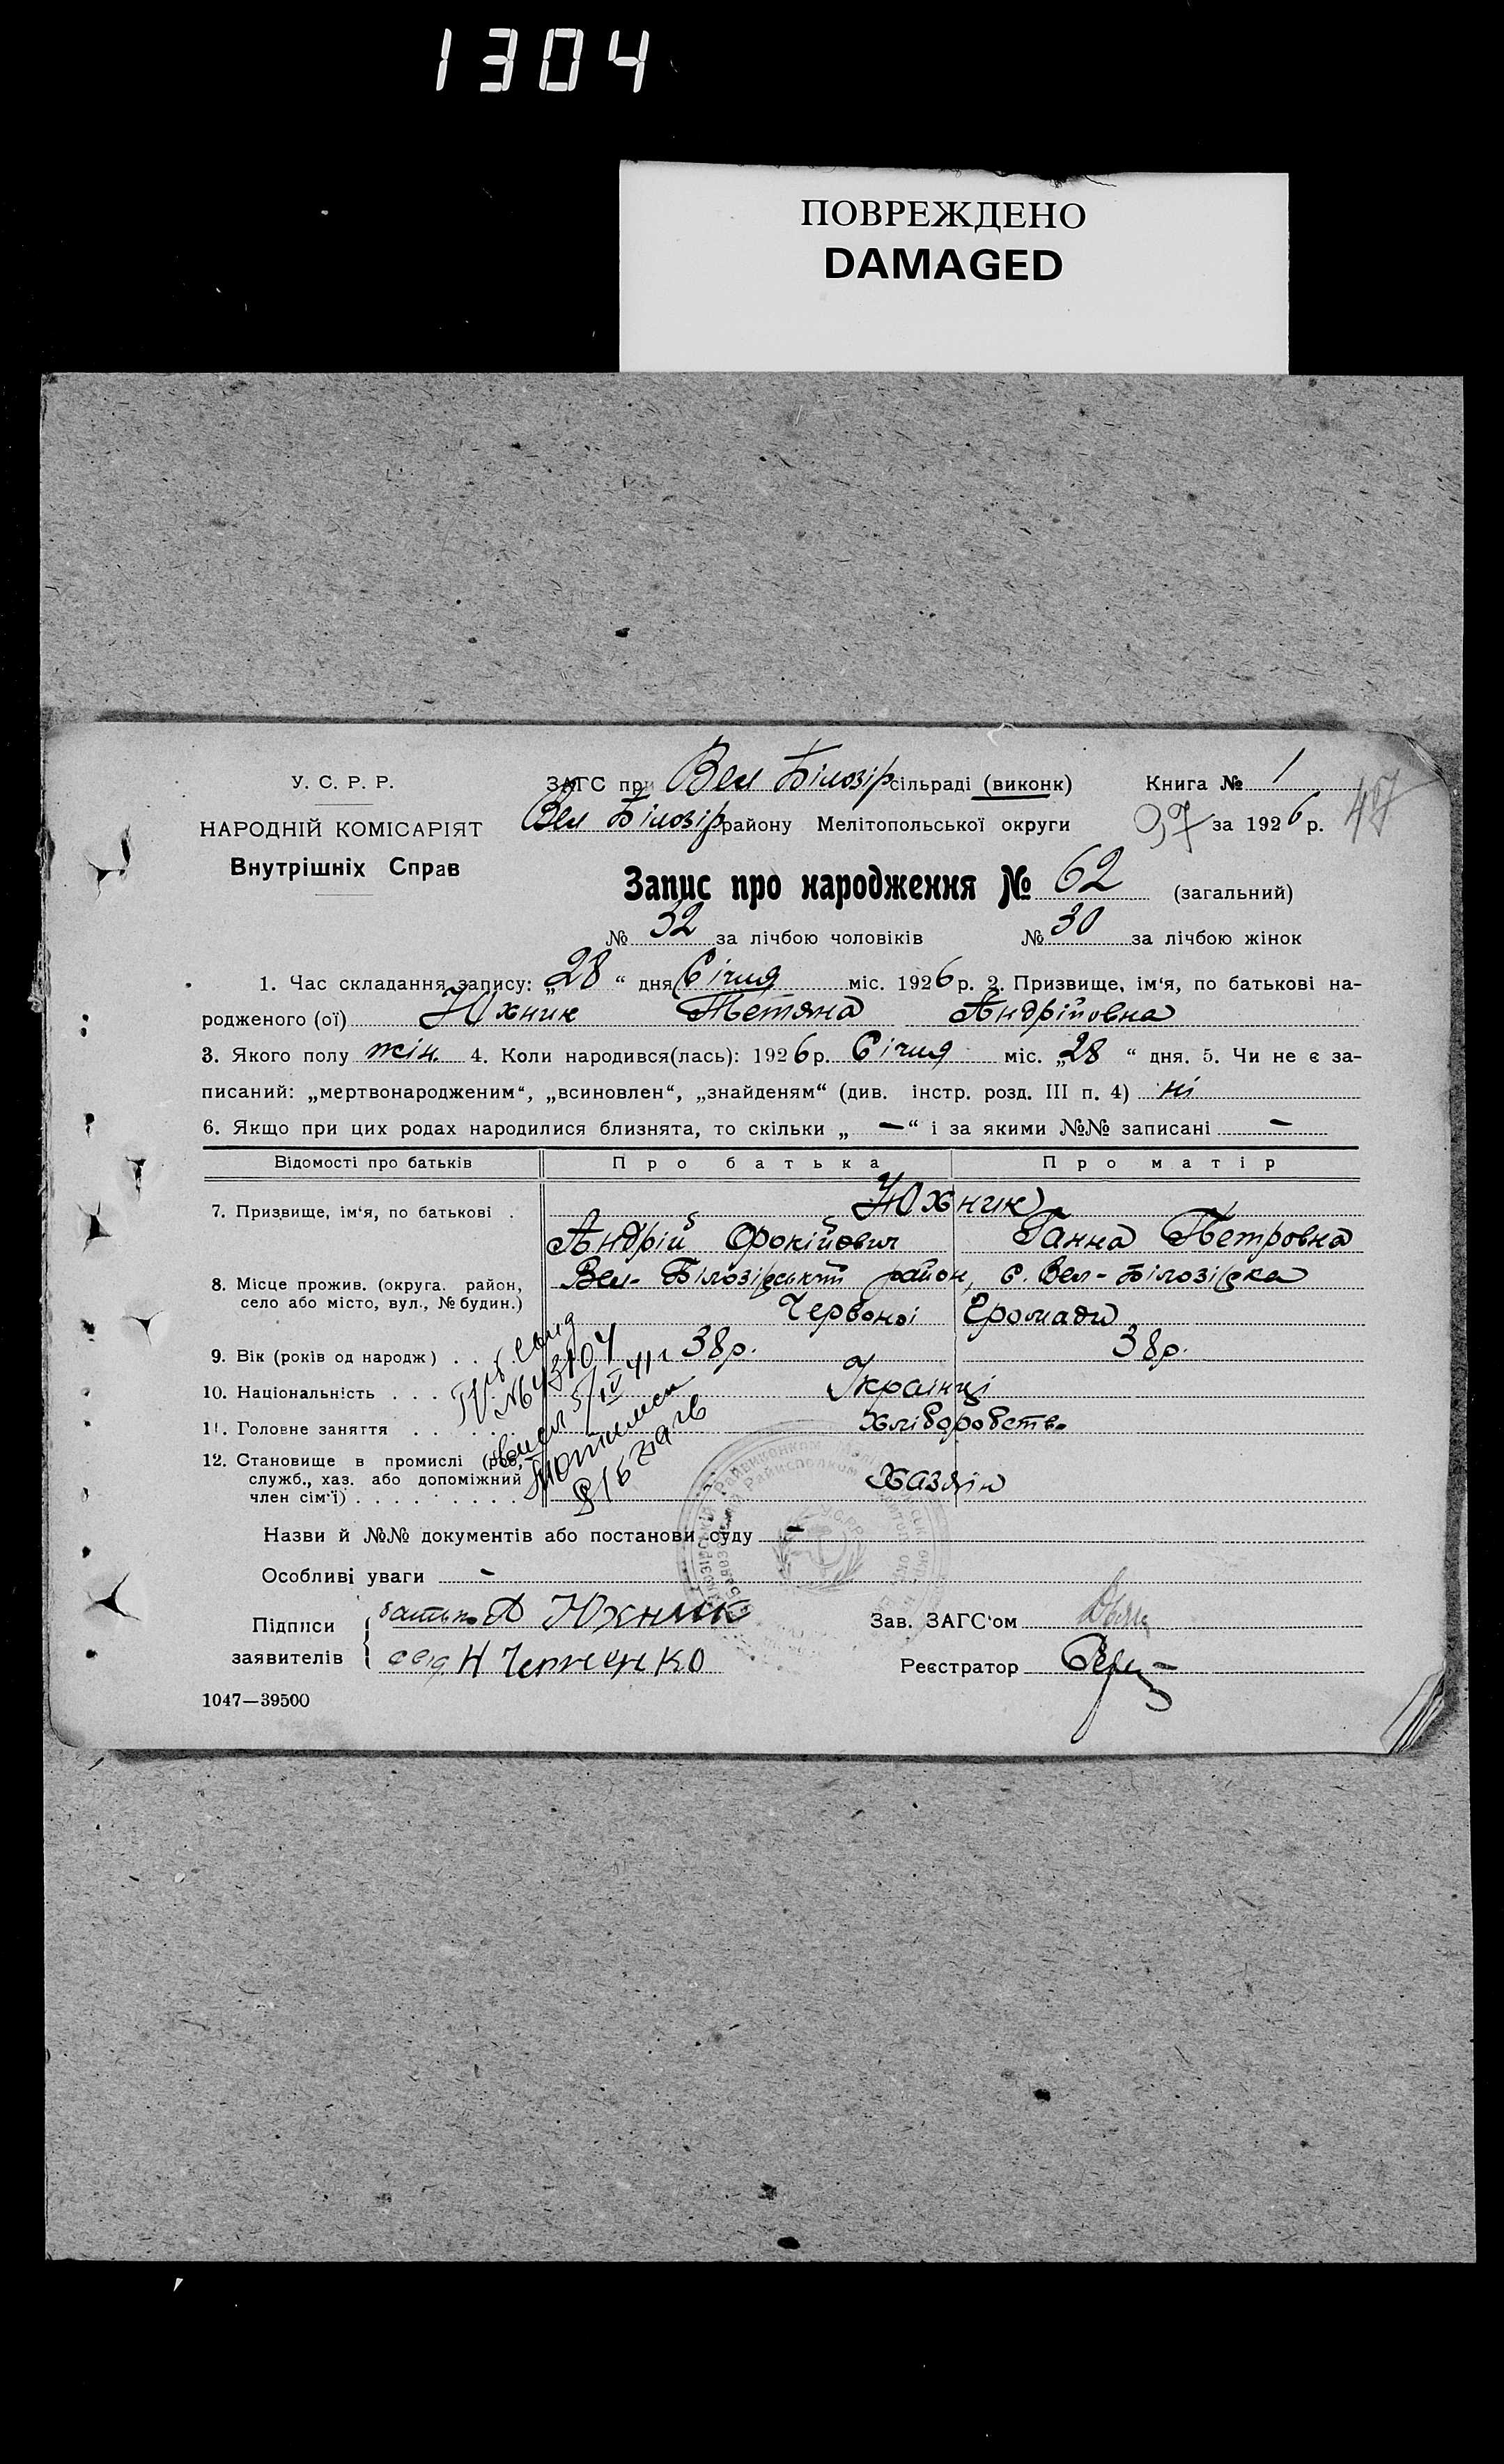 1304
ПОВРЕЖДЕНО
DAMAGED
У. С. Р. Р.
НАРОДНІЙ КОМІСАРІЯТ
Внутрішніх Справ
ЗАГС при Вел Білозір сільраді (виконк)
Книга № 1
Вел Білозір району Мелітопольської округи
37 за 1926 р.
47
Запис про народження № 62 (загальний)
№ 32 за лічбою чоловіків № 30 за лічбою жінок
1. Час складання запису: „28“ дня Січня міс. 1926 р. 2. Призвище, ім‘я, по батькові на-
родженого (ої) Юхник Тетяна Андрійовна
3. Якого полу жін. 4. Коли народився(лась): 1926 р. Січня міс. „28“ дня. 5. Чи не є за-
писаний: „мертвонародженим“, „всиновлен“, „знайденям“ (див. інстр. розд. III п. 4) ні
6. Якщо при цих родах народилися близнята, то скільки „ — “ і за якими №№ записані —
Відомості про батьків Про батька Про матір
7. Призвище, ім‘я, по батькові . Юхник
Андрій Фокійович Ганна Петровна
8. Місце прожив. (округа, район,
село або місто, вул., № будин.)
Вел-Білозірський район, с. Вел-Білозірка
Червоної Громади
9. Вік (років од народж) . . . 38р. 38р.
10. Національність . . . Українці
11. Головне заняття . . . . Хліборобство
12. Становище в промислі (роб,
служб., хаз. або допоміжний
член сім‘ї) . . . . . . . . .
Хазяін
Назви й №№ документів або постанови суду —
Особливі уваги —
Підписи
заявителів
батько А Юхник
Зав. ЗАГС‘ом
Реєстратор
1047—39500